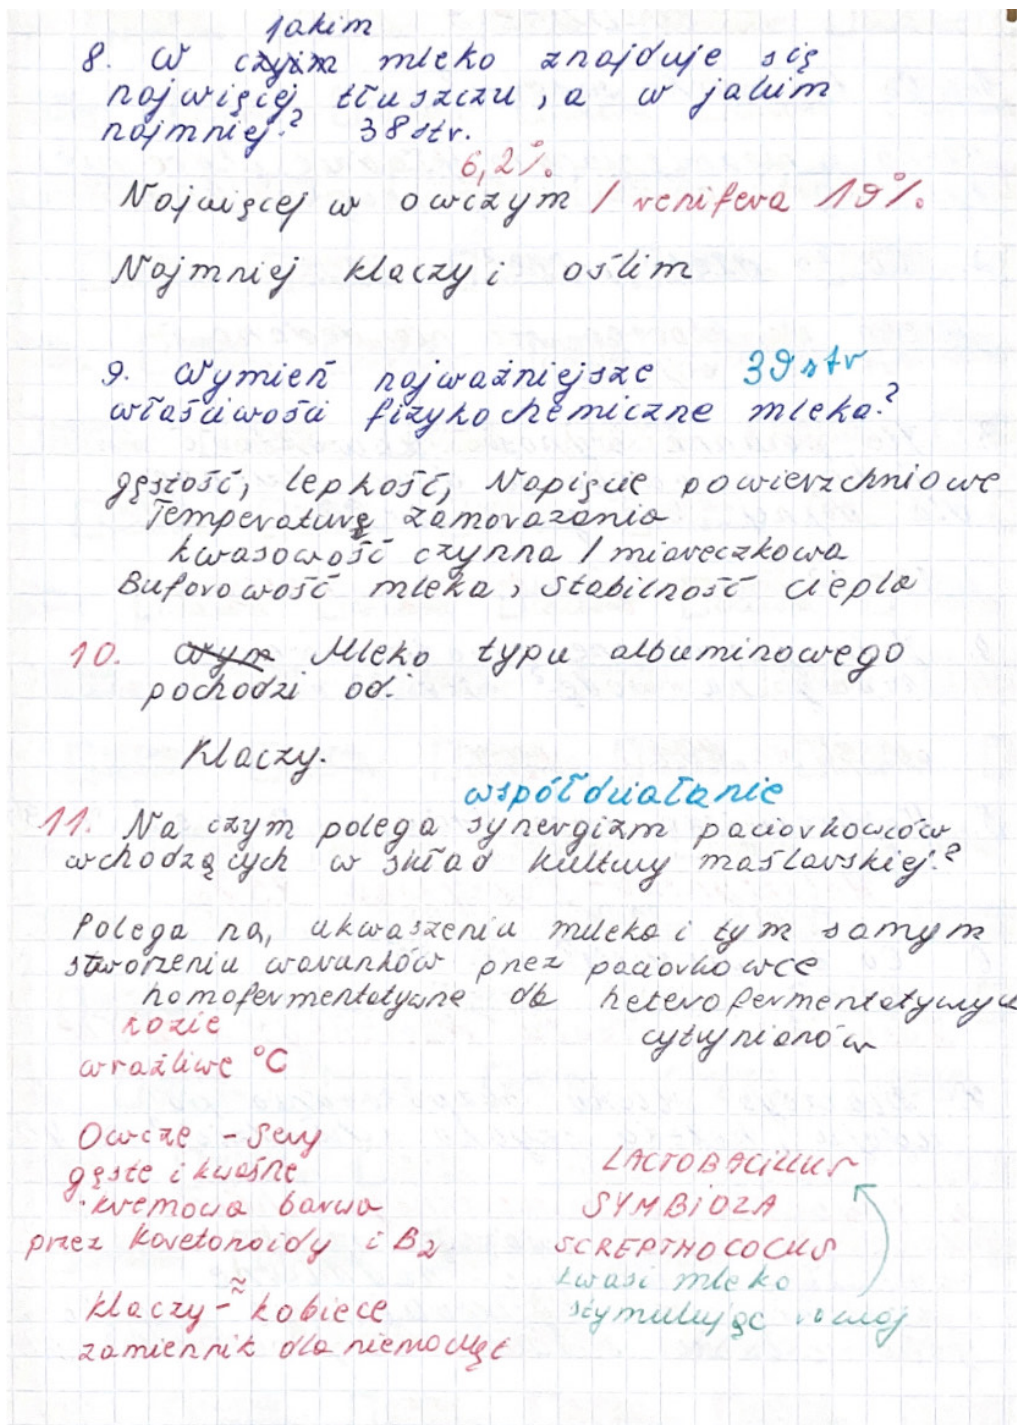 jakim
8. W czyim mleko znajduje się
najwięcej tłuszczu, a w jakim
najmniej? 38 str.
6,2%
Najwięcej w owczym / renifera 19%
Najmniej klaczy i oślim
9. Wymień najważniejsze 39 str
właściwości fizykochemiczne mleka?
gęstość, lepkość, Napięcie powierzchniowe
Temperaturę zamarazania
kwasowość czynna / miareczkowa
Buforowość mleka, Stabilność ciepla
10. Wym Mleko typu albuminowego
pochodzi od:
Klaczy.
współdziałanie
11. Na czym polega synergizm paciorkowców
wchodzących w skład kultury maślarskiej?
Polega na, ukwaszeniu mleka i tym samym
stworzeniu warunków przez paciorkowce
homofermentatywne dla heterofermentatywnych
cytrynianów
kozie
wrażliwe °C
Owcze - Sery
gęste i kwaśne
· kremowa barwa
przez Karetonoidy i B2
klaczy - ≈ kobiece
zamiennik dla niemowląt
LACTOBACILLUS
SYMBIOZA
SCREPTHOCOCUS
kwasi mleko
stymulując rozwój